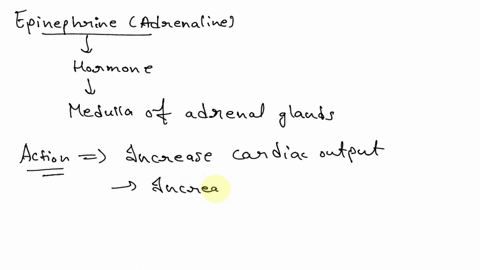 Epinephrine (Adrenaline)
↓
Hormone
↓
Medulla of adrenal glands
Action => Increase cardiac output
→ Increa